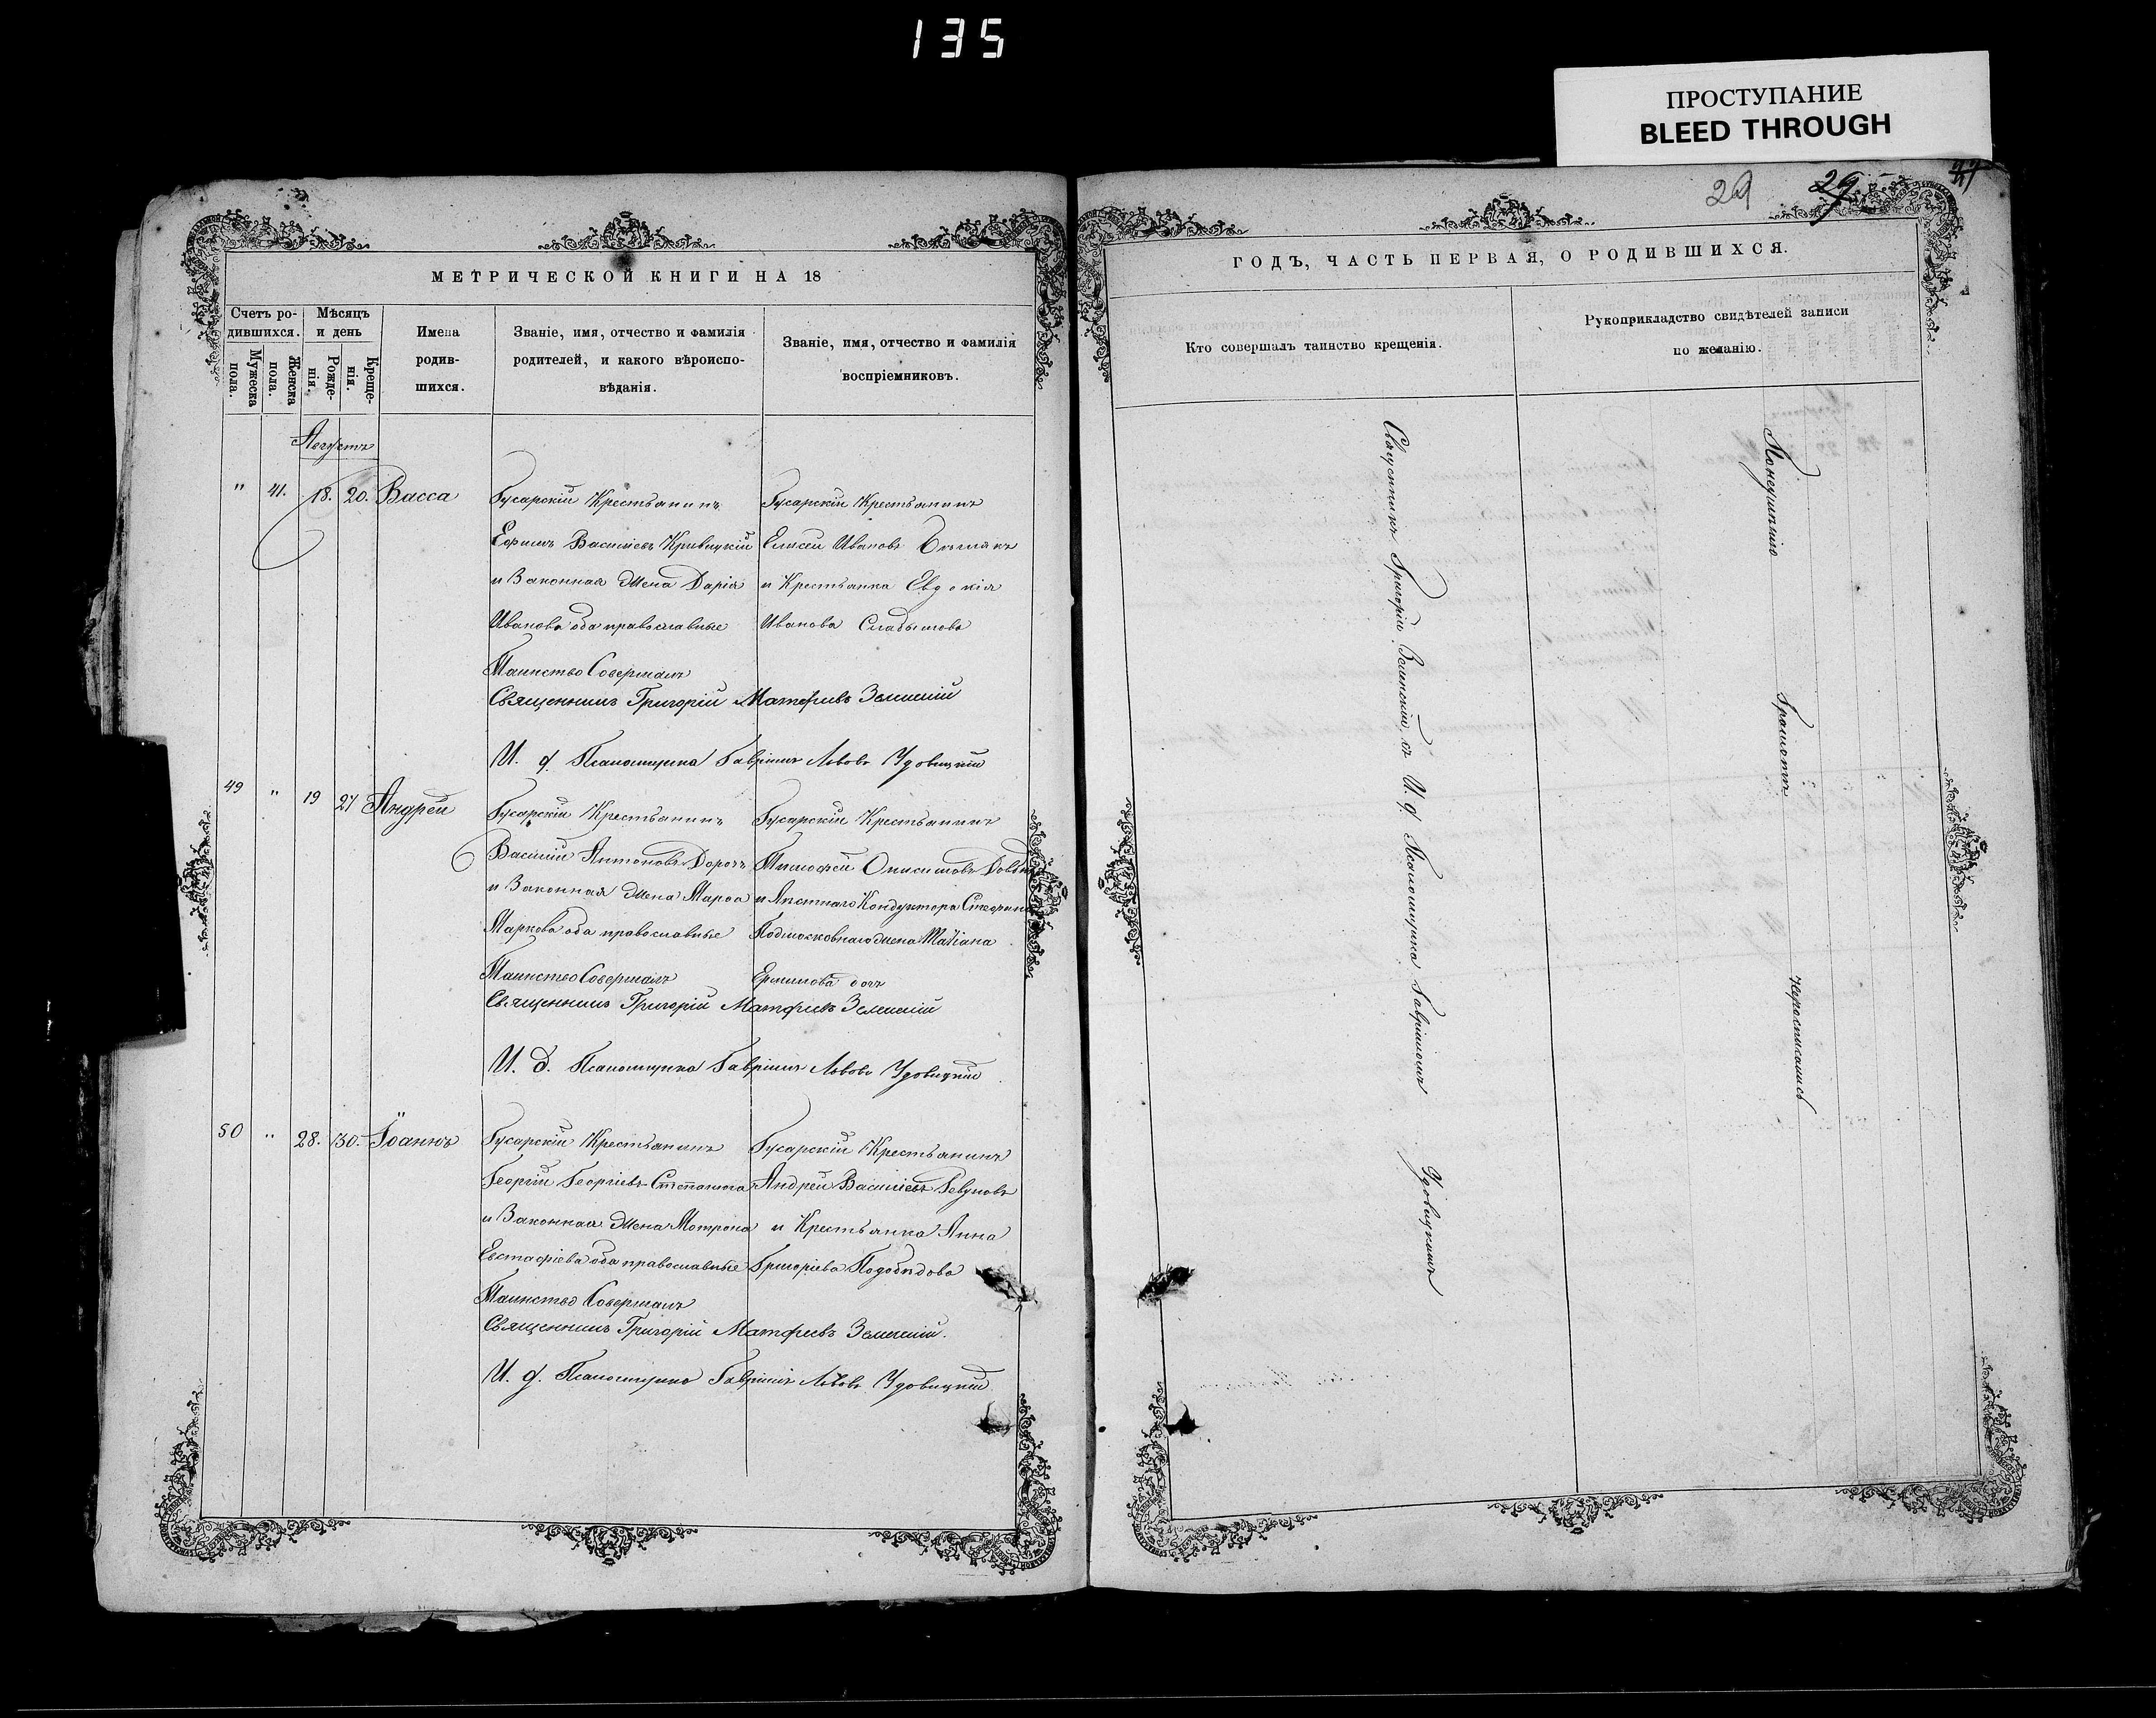 135
ПРОСТУПАНИЕ
BLEED THROUGH
29 29
МЕТРИЧЕСКОЙ КНИГИ НА 18
Счетъ ро-
дившихся.
Мужеска
пола.
Женска
пола.
Мѣсяцъ
и день
Рожде-
нія.
Креще-
нія.
Имена
родив-
шихся.
Званіе, имя, отчество и фамилія
родителей, и какого вѣроиспо-
вѣданія.
Званіе, имя, отчество и фамилія
воспріемниковъ.
Августъ
" 41. 18. 20. Васса
Гусарскій Крестьянинъ
Ефимъ Василіевъ Кривицкій
и Законная Жена Дарія
Иванова оба православные
Гусарскій Крестьянинъ
Елисей Ивановъ
и Крестьянка Евдокія
Иванова
Таинство Совершалъ
Священникъ Григорій Матфіевъ
И. д. Псаломщика Гавріилъ Львовъ Удовицкій
49 " 19 27 Андрей
Гусарскій Крестьянинъ
Василій Антоновъ
и Законная Жена Марѳа
Маркова оба православные
Гусарскій Крестьянинъ
Тимофей
и Кондуктора
Жена Татіана
Таинство Совершалъ
Священникъ Григорій Матфіевъ
И. д. Псаломщика Гавріилъ Львовъ Удовицкій
50 " 28. 30. Іоаннъ
Гусарскій Крестьянинъ
Георгій Георгіевъ
и Законная Жена Мотрона
Евстафіева оба православные
Гусарскій Крестьянинъ
Андрей Василіевъ Ревуновъ
и Крестьянка Анна
Григоріева Подобѣдова
Таинство Совершалъ
Священникъ Григорій Матфіевъ
И. д. Псаломщика Гавріилъ Львовъ Удовицкій
ГОДЪ, ЧАСТЬ ПЕРВАЯ, О РОДИВШИХСЯ.
Кто совершалъ таинство крещенія.
Рукоприкладство свидѣтелей записи
по желанію.
Священникъ Григорій съ И. д. Псаломщика Гавріиломъ Удовицкимъ